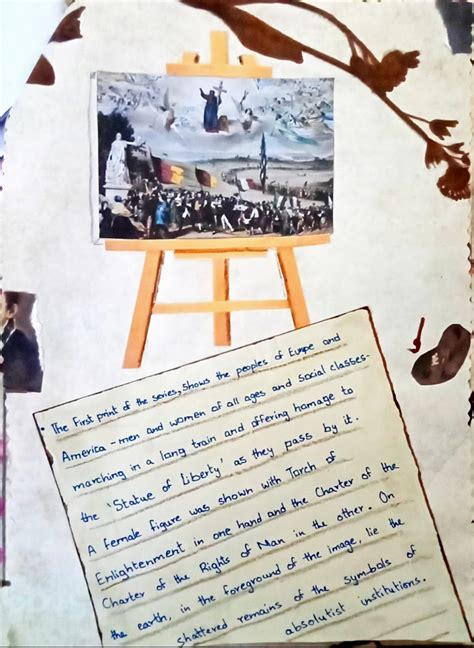 • The First print of the series, shows the peoples of Europe and
America - men and women of all ages and social classes-
marching in a long train and offering homage to
the 'Statue of Liberty' as they pass by it.
A female figure was shown with Tarch of
Enlightenment in one hand and the Charter of the
Charter of the Rights of Man in the other. On
the earth, in the foreground of the image, lie the
shattered remains of the symbols of
absolutist institutions.